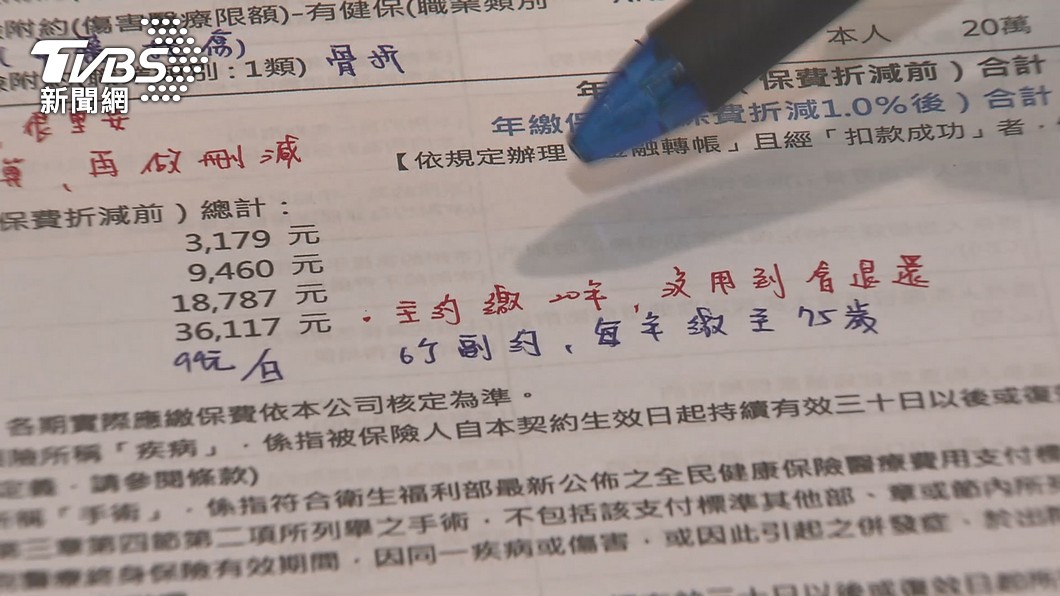 附約(傷害醫療限額)-有健保(職業類別
本人 20萬
傷)
:1類) 骨折
TVBS
新聞網
保費折減前)合計
年繳保
費折減1.0%後)合計
再做刪減
【依規定辦理
金融轉帳」且經「扣款成功」者,
保費折減前)總計:
3,179 元
9,460 元
18,787 元
36,117 元
99元/日
・主約繳20年,沒用到會退還
6個副約、每年繳至75歲
各期實際應繳保費依本公司核定為準。
險所稱「疾病」,係指被保險人自本契約生效日起持續有效三十日以後或復
定義,請參閱條款)
所稱「手術」,係指符合衛生福利部最新公佈之全民健康保險醫療費用支付標
第三章第四節第二項所列舉之手術,不包括該支付標準其他部、章或節內所列
醫療終身保險有效期間,因同一疾病或傷害,或因此引起之併發症,於出
三十日以後或復效日起所